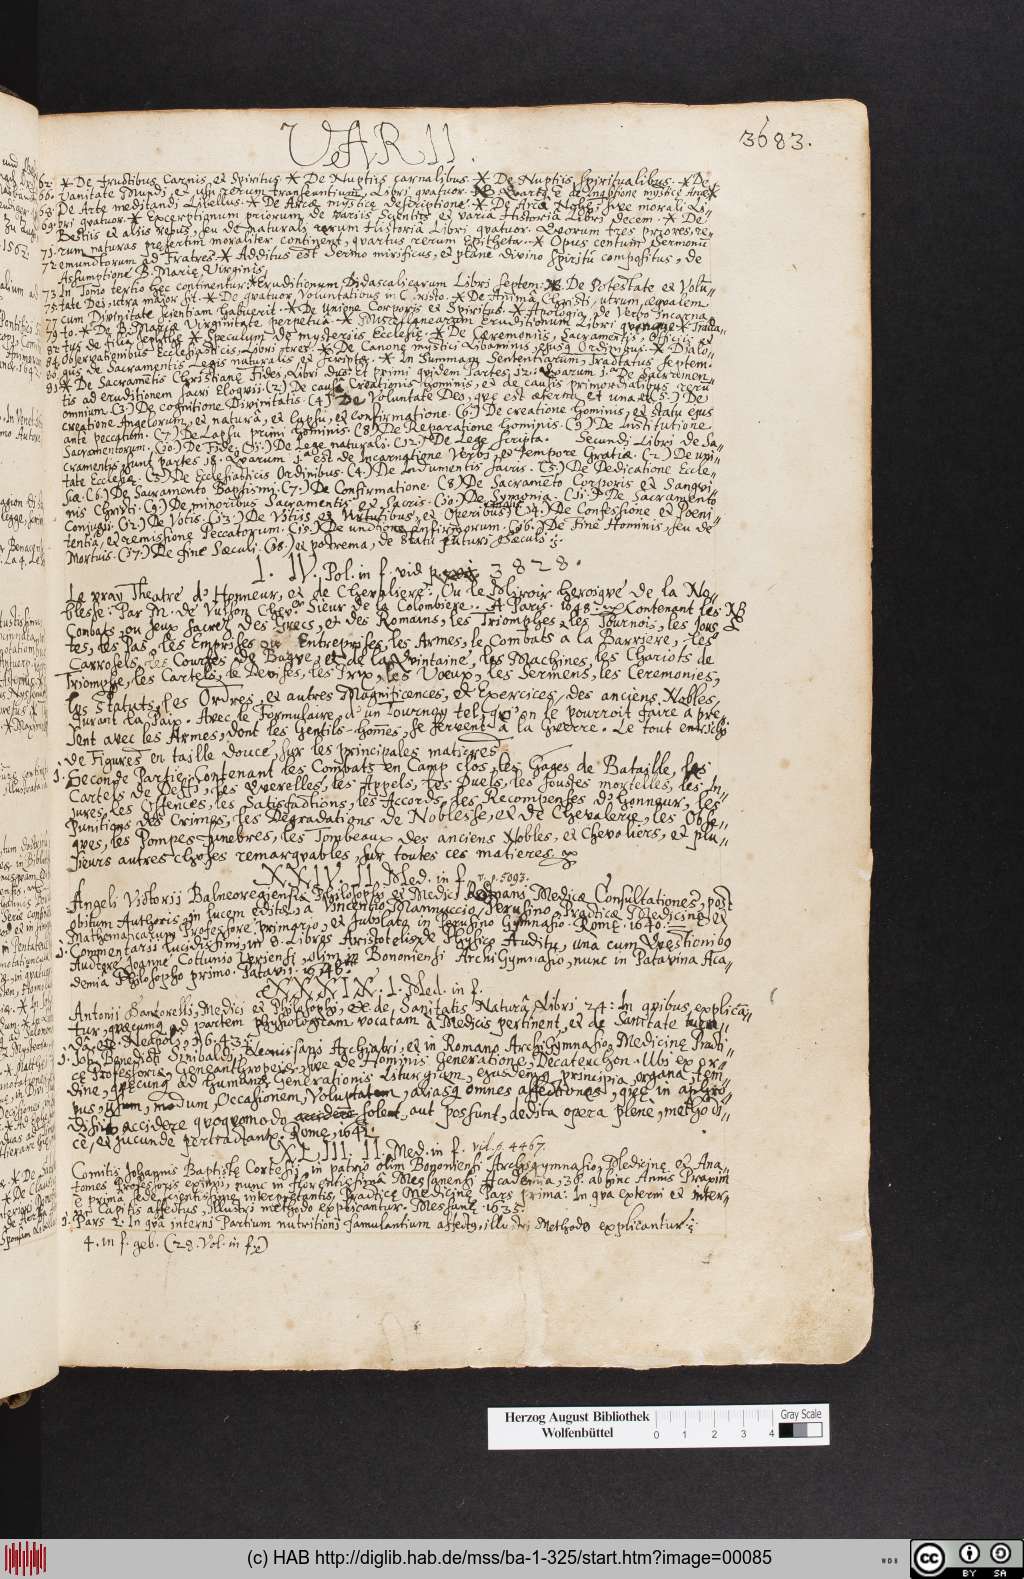 VARII.
3683.
* De fructibus Carnis, et Spiritus * De Nuptiis carnalibus * De Nuptiis Spiritualibus * De
Vanitate Mundi, et usu rerum transeuntium, Libri quatuor
De Arte meditandi Libellus * De Arcæ mysticæ descriptione * De Arca Nohe, sive morali Li-
bri quatuor * Exceptionum priorum de variis Scientiis et varia Historia Libri decem * De
Bestiis et aliis rebus, seu de naturali rerum Historia Libri quatuor. Quorum tres priores, re-
rum naturas præsertim moraliter continent, quartus rerum Epitheta * Opus centum Sermonum
emunctorum ad Fratres * Additus est Sermo mirificus, et plane divino Spiritu compositus, de
Assumptione B. Mariæ Virginis.
In Tomo tertio hæc continentur: * Eruditionum Didascalicarum Libri septem * De Potestate et Volu-
tate Dei, utra major sit * De quatuor Voluntatibus in Christo * De Anima Christi, utrum æqualem
cum Divinitate scientiam habuerit * De Unione Corporis et Spiritus * Apologia de Verbo Incarna-
to * De B. Mariæ Virginitate perpetua * Miscellanearum Eruditionum Libri * Tracta-
tus de filia Jephthe * Speculum de mysteriis Ecclesiæ * De Ceremoniis, Sacramentis, Officiis et
Observationibus Ecclesiasticis, Libri tres * De Canone mystici Libaminis, ejusq Ordinibus * Dialo-
gus de Sacramentis Legis naturalis et scriptæ * In Summam Sententiarum, Tractatus septem
* De Sacrametis Christianæ Fidei, Libri duo et primi quidem Partes 12. Quarum 1.a De Sacramen-
tis ad eruditionem sacri Eloquii (2.) De causa Creationis hominis, et de causis primordialibus reru
omnium (3.) De cognitione Divinitatis (4.) De Voluntate Dei, quæ est æterna et una (5.) De
creatione Angelorum, et natura, et lapsu, et confirmatione (6.) De creatione hominis, et statu ejus
ante peccatum (7.) De Lapsu primi hominis (8.) De Reparatione hominis (9.) De Institutione
Sacramentorum (10.) De Fide (11.) De Lege naturali (12.) De Lege scripta. Secundi Libri de Sa-
cramentis sunt partes 18. Quarum 1.a est de Incarnatione Verbi, et tempore Gratiæ (2.) De uni-
tate Ecclesiæ (3.) De Ecclesiasticis Ordinibus (4.) De Indumentis sacris (5.) De Dedicatione Eccle-
siæ (6.) De Sacramento Baptismi (7.) De Confirmatione (8.) De Sacrameto Corporis et Sangvi-
nis Christi (9.) De minoribus Sacramentis, et Sacris (10.) De Symonia (11.) De Sacramento
Conjugii (12.) De Votis (13.) De Vitiis et Virtutibus, et Operibus (14.) De Confessione et Pœni-
tentia, et remissione Peccatorum (15.) De unctione infirmorum (16.) De fine Hominis, seu de
Mortuis (17.) De fine Sæculi (18.) et postrema, de statu futuri Sæculi
1. IV. Pol. in f. vid p. 3828.
Le vray Theatre d'Honneur, et de Chevalerie: Ou le Miroir heroique de la No-
blesse: Par M. de Vulson Chev.er Sieur de la Colombiere. A Paris. 1648. Contenant les
Conbats, ou Jeux sacrez des Grecs, et des Romains, les Triomphes, les Tournois, les Jous-
tes, les Pas, les Emprises ou Entreprises, les Armes, le Combats a la Barriere, les
Carrosels, les Courses de Bague, et de la Quintaine, les Machines, les Chariots de
Triomphe, les Cartels, le Devises, les Prix, les Vœux, les Sermens, les Ceremonies,
les Statuts, les Ordres, et autres Magnificences, et Exercices, des anciens Nobles,
durant la Paix. Avec le Formulaire, d'un Tournoy tel, qu'on le pourroit faire a pre-
sent avec les Armes, dont les Gentils-homes, se servent à la Guerre. Le tout enrichy
de Figures en taille douce, sur les principales matieres
1. Seconde Partie: Contenant les Combats en Camp clos, les Gages de Bataille, les
Cartels de Deffy, les Querelles, les Appels, les Duels, les Joustes mortelles, les In-
jures, les Offences, les Satisfactions, les Accords, les Recompenses d'Honneur, les
Punitions des Crimes, les Degradations de Noblesse, et de Chevalerie, les Obse-
ques, les Pompes funebres, les Tombeaux des anciens Nobles, et Chevaliers, et plu-
sieurs autres choses remarquables, sur toutes ces matieres
XXIV. II. Med. in f. v. p. 5093.
Angeli Victorii Balneoregiensis Philosophi et Medici Romani Medicæ Consultationes, post
obitum Authoris in lucem editæ, a Vincentio Mannuccio, Perusino, Practicæ Medicinæ et
Mathematicarum Professore primario, et sublata in Perusino Gymnasio. Romæ. 1640.
1. Commentarii lucidissimi, in 8. Libros Aristotelis de Physico Auditu, una cum Quæstionibus
Auctore Joanne Cottunio Veriensi, olim in Bononiensi ArchiGymnasio, nunc in Patavina Aca-
demia Philosopho primo. Patavii. 1648.
XXXIX. I. Med. in f.
Antonii Santorelli, Medici et Philosophi, de Sanitatis Natura Libri 24: In quibus explica-
tur, quæcunq ad partem physiologicam vocatam à Medicis pertinent, et de Sanitate
da etc. Neapol, 1643.
1. Joh: Benedicti Sinibaldi, Leonissani Archiatri, et in Romano ArchiGymnasio, Medicinæ Practi-
cæ Professoris, Geneanthropeiæ, sive de Hominis Generatione, Decateuchon. Ubi ex or-
dine, quæcunq ad humanæ Generationis Liturgiam, ejusdemq principia, organa, tem-
pus, usum, modum, Occasionem, Voluptatem, aliasq omnes affectiones, quæ in aphro-
disiis accidere quoquomodo solent, aut possunt, dedita opera plenè, methodi-
cè, et jucundè pertractantr. Romæ, 1642.
XLIII. II. Med. in f. vid. p. 4467.
Comitis Johannis Baptistæ Cortesii, in patrio olim Bononiensi Archigymnasio, Medicinæ et Ana-
tomes Professoris eximii, nunc in florentissima Messanensi Academia, 36. ab hinc Annis Praxim
e prima sede scientissime interpretantis, Practicæ Medicinæ Pars prima: In qua externi et inter-
ni Capitis affectus, illustri methodo explicantur. Messanæ. 1635.
1. Pars 2. In qua interni Partium nutritioni famulantium affectus, illustri Methodo explicantur.
4. in f. geb. (28. Vol. in f.)
Herzog August Bibliothek
Wolfenbüttel
0 1 2 3 4
Gray Scale
(c) HAB http://diglib.hab.de/mss/ba-1-325/start.htm?image=00085
WDB
CC BY SA